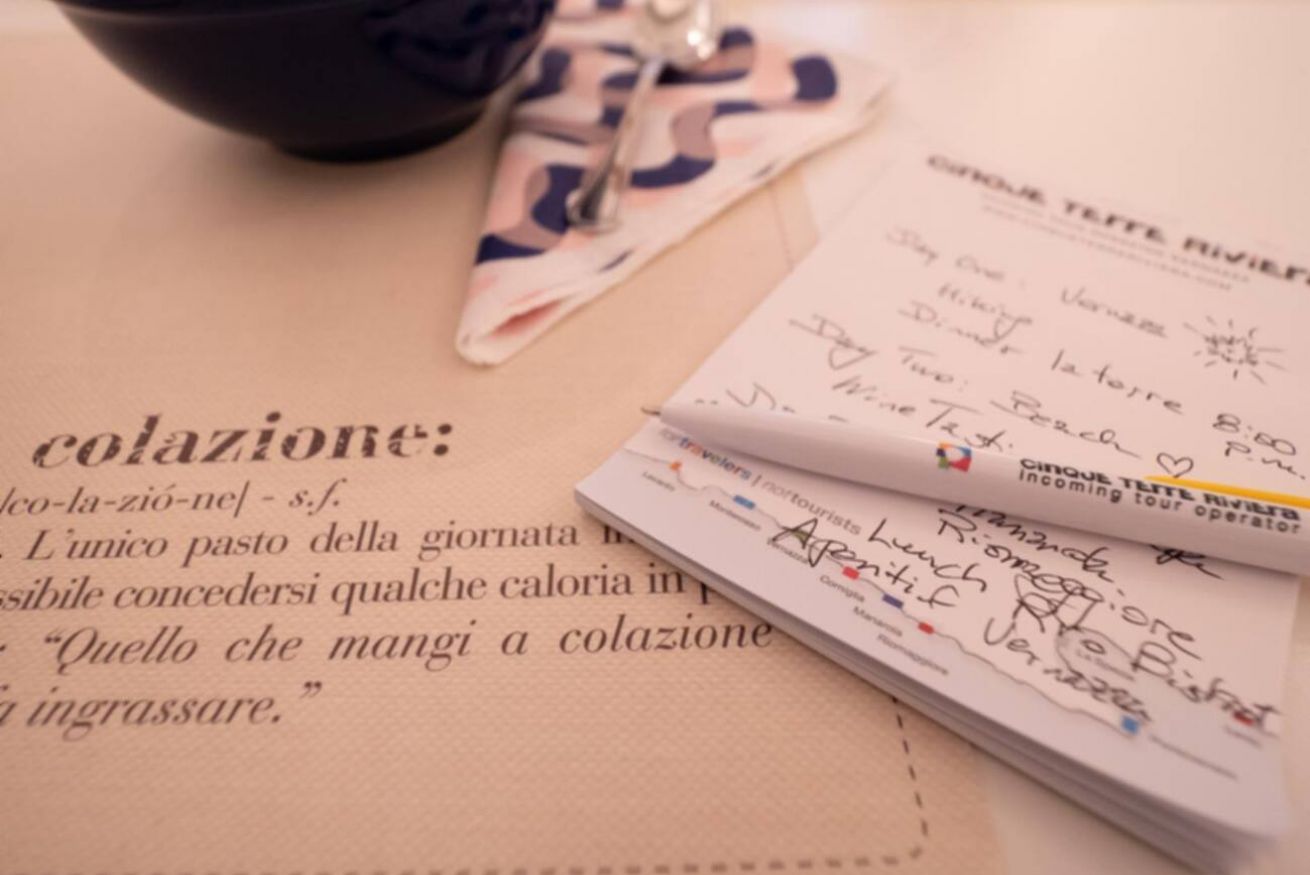 colazione:
|co-la-zió-ne| - s.f.
. L'unico pasto della giornata
ssibile concedersi qualche caloria in p
: “Quello che mangi a colazione
fa ingrassare.”
CINQUE TERRE RIVIERA
Day One: Vernazza
Hiking
Dinner la torre 8:00 p.m.
Day Two: Beach
Wine Tasti
CINQUE TERRE RIVIERA
incoming tour operator
fortravelers | notourists
Levanto
Monterosso
Vernazza
Corniglia
Manarola
Riomaggiore
La Spezia
Riomaggiore
Lunch Rio Bistrot
Aperitif Vernazza